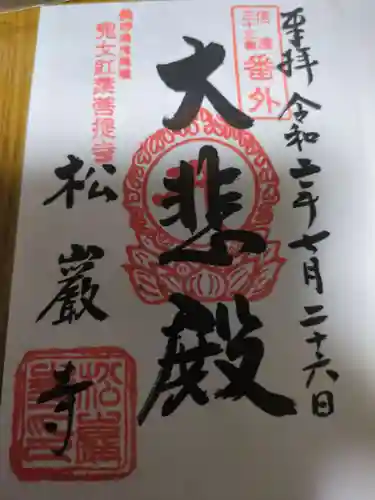 奉拝 令和二年七月二十六日
信濃三十三観音
番外
大悲殿
鬼女紅葉菩提寺
松巖寺